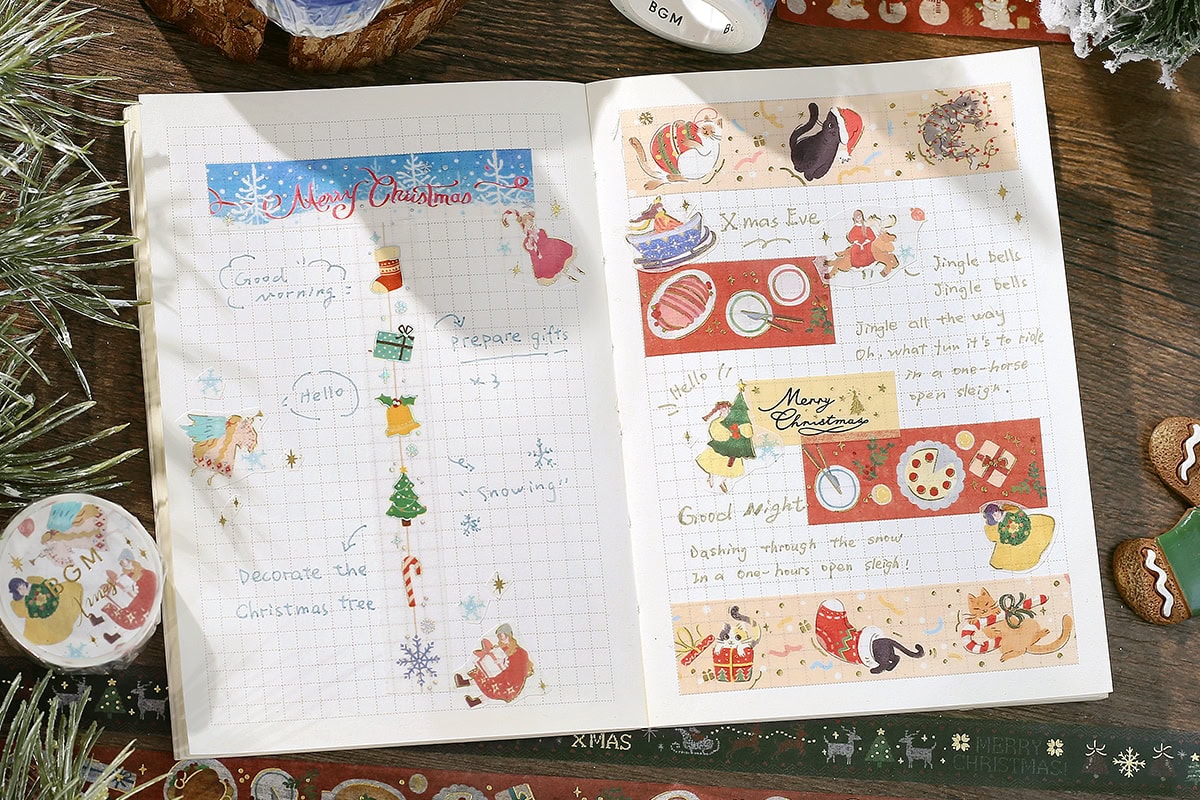 BGM
Merry Christmas
Good
morning
prepare gifts
x3
Hello
"Snowing"
Decorate the
Christmas tree
Xmas Eve
Jingle bells
Jingle bells
Jingle all the way
Oh, what fun it's to ride
in a one-horse
open sleigh.
Hello
Merry
Christmas
Good Night
Dashing through the snow
In a one-hours open sleigh!
BGM
XMAS
MERRY
CHRISTMAS!